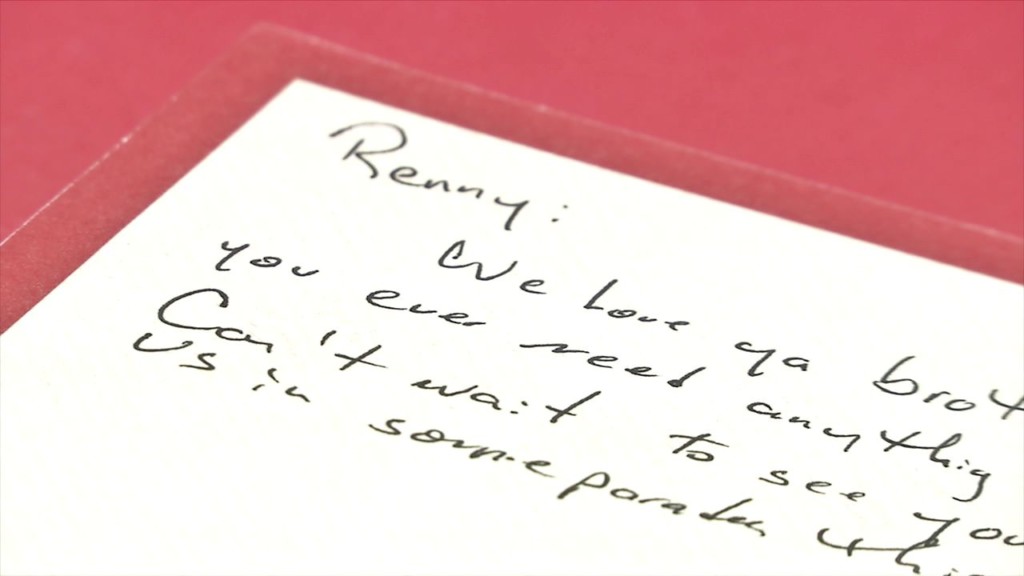 Renny:
We love ya brot
you ever need anythig
Can't wait to see you
us in some